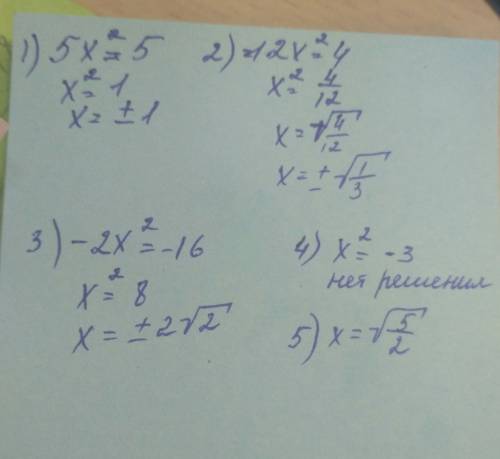 1) 5x² = 5
x² = 1
x = ± 1
2) -12x² = 4
x² = 4/12
x = √4/12
x = ± √1/3
3) -2x² = -16
x² = 8
x = ± 2√2
4) x² = -3
нет решения
5) x = √5/2